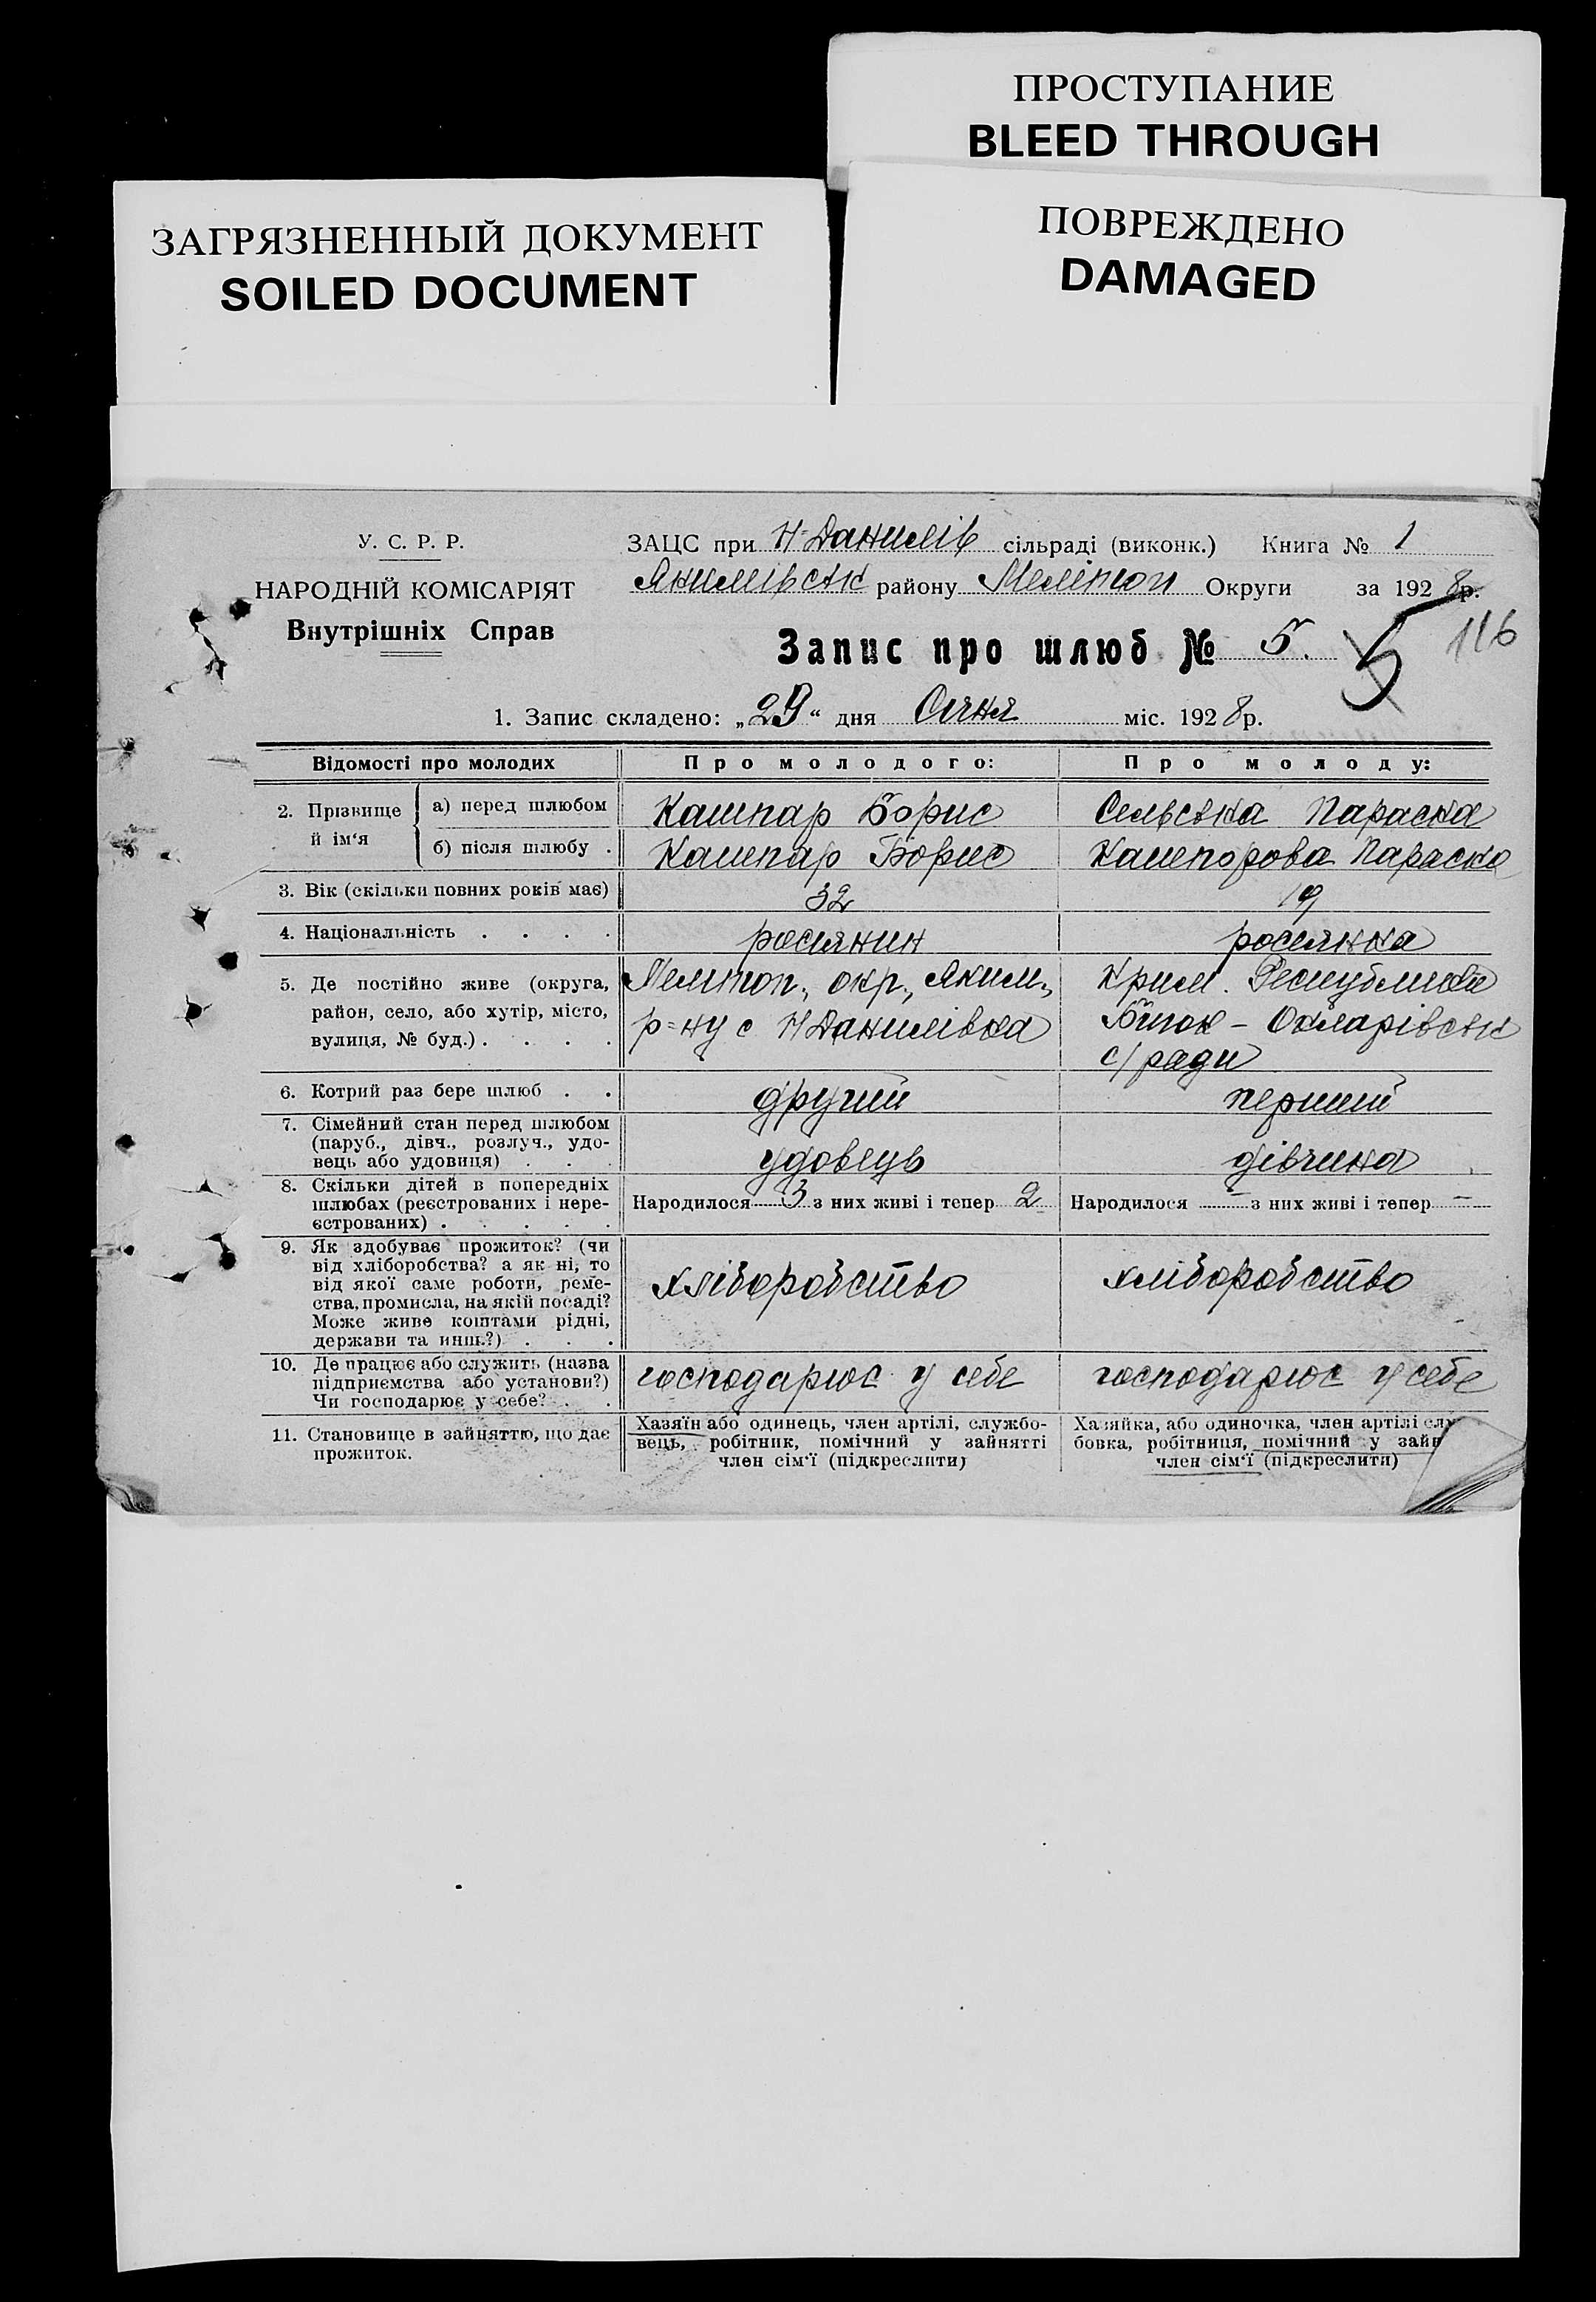 ПРОСТУПАНИЕ
BLEED THROUGH
ЗАГРЯЗНЕННЫЙ ДОКУМЕНТ
SOILED DOCUMENT
ПОВРЕЖДЕНО
DAMAGED
У. С. Р. Р.
НАРОДНІЙ КОМІСАРІЯТ
Внутрішніх Справ
ЗАЦС при Н-Данилів сільраді (виконк.) Книга № 1
Якимівськ району Мелітоп Округи за 1928р.
Запис про шлюб № 5. 5 116
1. Запис складено: „29“ дня Січня міс. 1928р.
Відомості про молодих Про молодого: Про молоду:
2. Прізвище й ім‘я
а) перед шлюбом Кашпар Борис Сельська Параска
б) після шлюбу . Кашпар Борис Кашпорова Параска
3. Вік (скільки повних років має) 32 19
4. Національність . . . . росіянин росіянка
5. Де постійно живе (округа,
район, село, або хутір, місто,
вулиця, № буд.) . . . .
Мелітоп., окр., Яким.,
р=ну с Н Данилівка
Крим. Республика
с/ради
6. Котрий раз бере шлюб . . другий перший
7. Сімейний стан перед шлюбом
(паруб., дівч., розлуч., удо-
вець або удовиця) . . .
удовець дівчина
8. Скільки дітей в попередніх
шлюбах (реєстрованих і нере-
єстрованих) . . . . .
Народилося 3 з них живі і тепер 2
Народилося - з них живі і тепер -
9. Як здобуває прожиток? (чи
від хліборобства? а як ні, то
від якої саме роботи, реме-
ства, промисла, на якій посаді?
Може живе коштами рідні,
держави та инш.?) . . .
хліборобство хліборобство
10. Де працює або служить (назва
підприємства або установи?)
Чи господарює у себе? . .
господарює у себе господарює у себе
11. Становище в зайняттю, що дає
прожиток.
Хазяїн або одинець, член артілі, службо-
вець, робітник, помічний у зайнятті
член сім‘ї (підкреслити)
Хазяйка, або одиночка, член артілі
бовка, робітниця, помічний у
член сім‘ї (підкреслити)